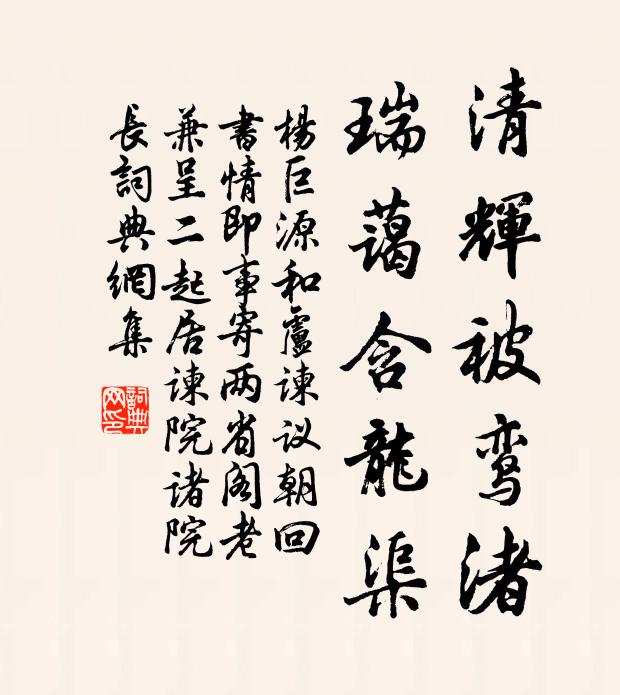 清輝被鸾渚
瑞藹含龍渠
楊巨源和盧諫议朝回
書情即事寄两省阁老
兼呈二起居諫院诸院
長詞典網集
詞典网印